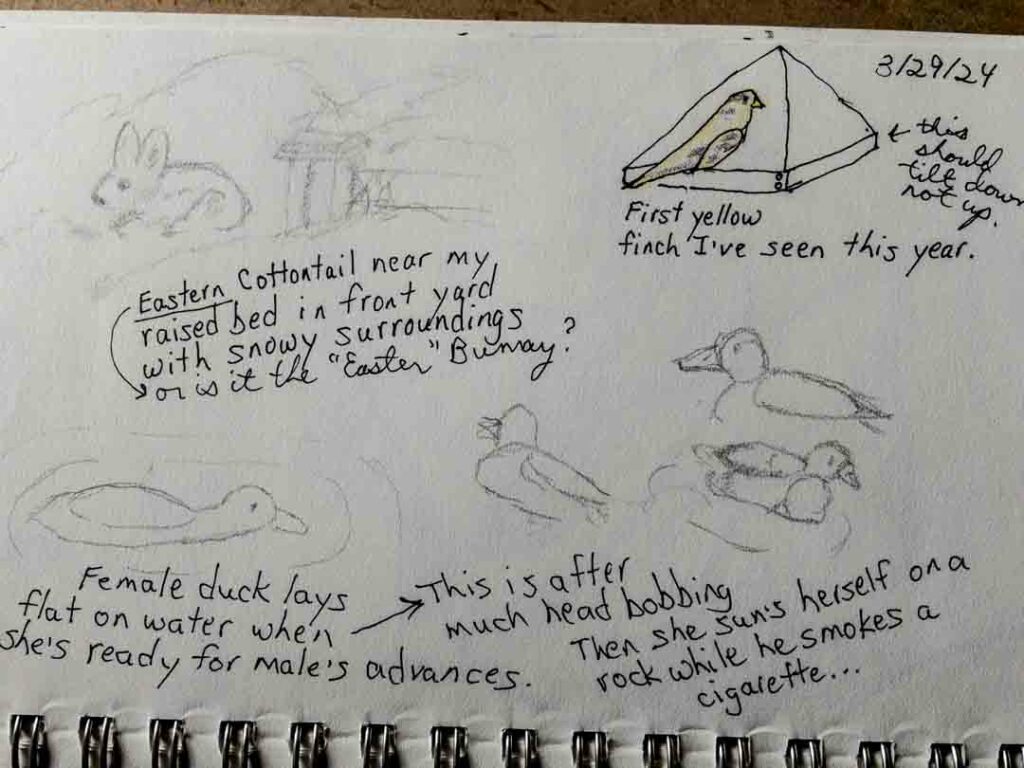 3/29/24
← this
should
tilt down
not up.
First yellow
finch I've seen this year.
Eastern Cottontail near my
raised bed in front yard
with snowy surroundings
or is it the "Easter" Bunny?
Female duck lays
flat on water when
she's ready for male's advances.
This is after
much head bobbing
Then she sun's herself on a
rock while he smokes a
cigarette...